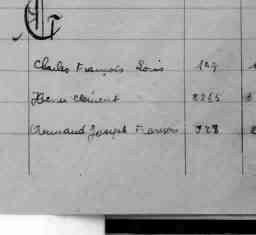 G
Charles François Louis 129
Henri Clément 2265
Armand Joseph François 328